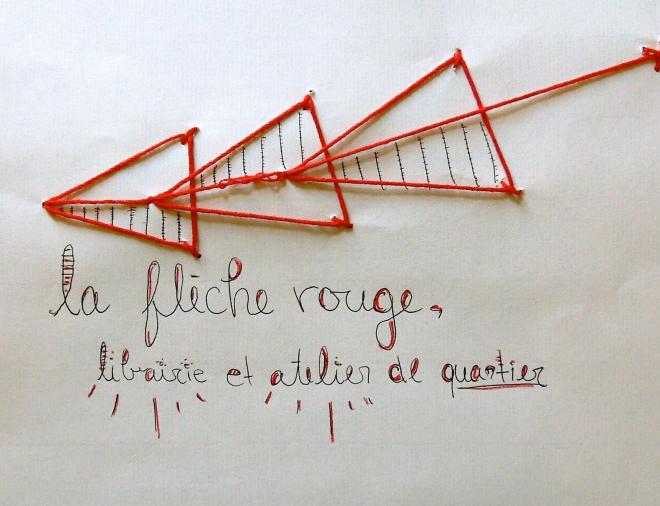 la flèche rouge,
librairie et atelier de quartier